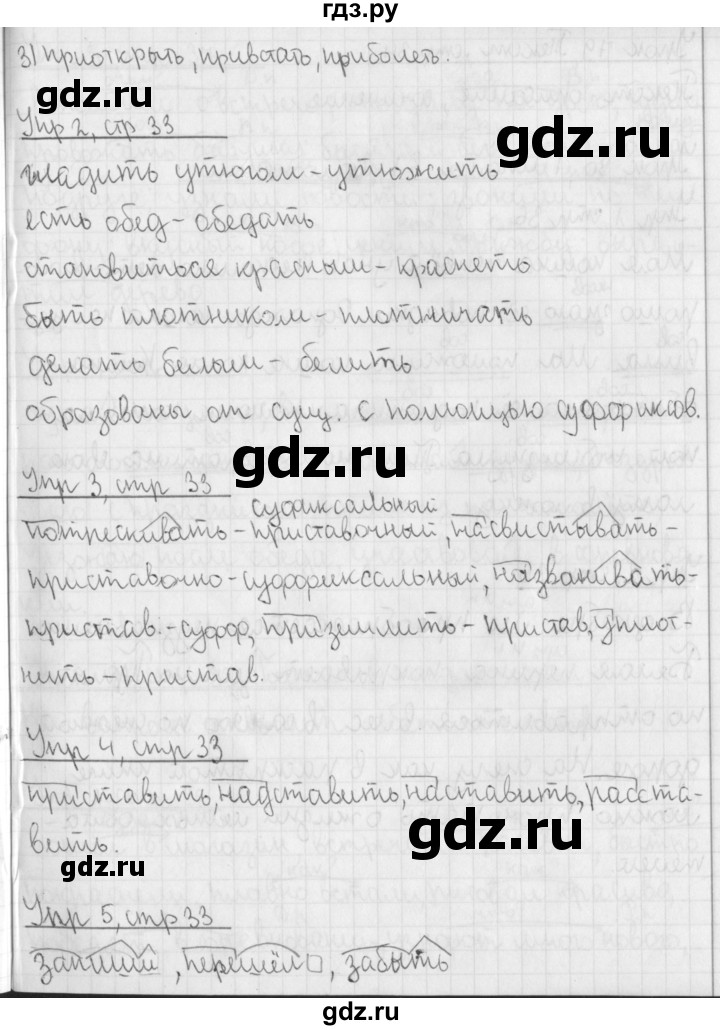 гдз.ру
3) приоткрыть, привстать, приболеть.
Упр 2, стр 33
гладить утюгом - утюжить
есть обед - обедать
становиться красным - краснеть
быть плотником - плотничать
делать белым - белить
образованы от сущ. с помощью суффиксов.
Упр 3, стр 33
суфриксальный
потрескивать - приставочный, насвистывать -
приставочно-суффриксальный, названивать-
пристав.-суфф, приземлить - пристав, уплот-
нить - пристав.
Упр 4, стр 33
приставить, надставить, наставить, расста-
вить.
Упр 5, стр 33
, перешёл, забыть
gdz.ru
gdz.ru
gdz.ru
gdz.ru
gdz.ru
gdz.ru
gdz.ru
gdz.ru
gdz.ru
gdz.ru
gdz.ru
gdz.ru